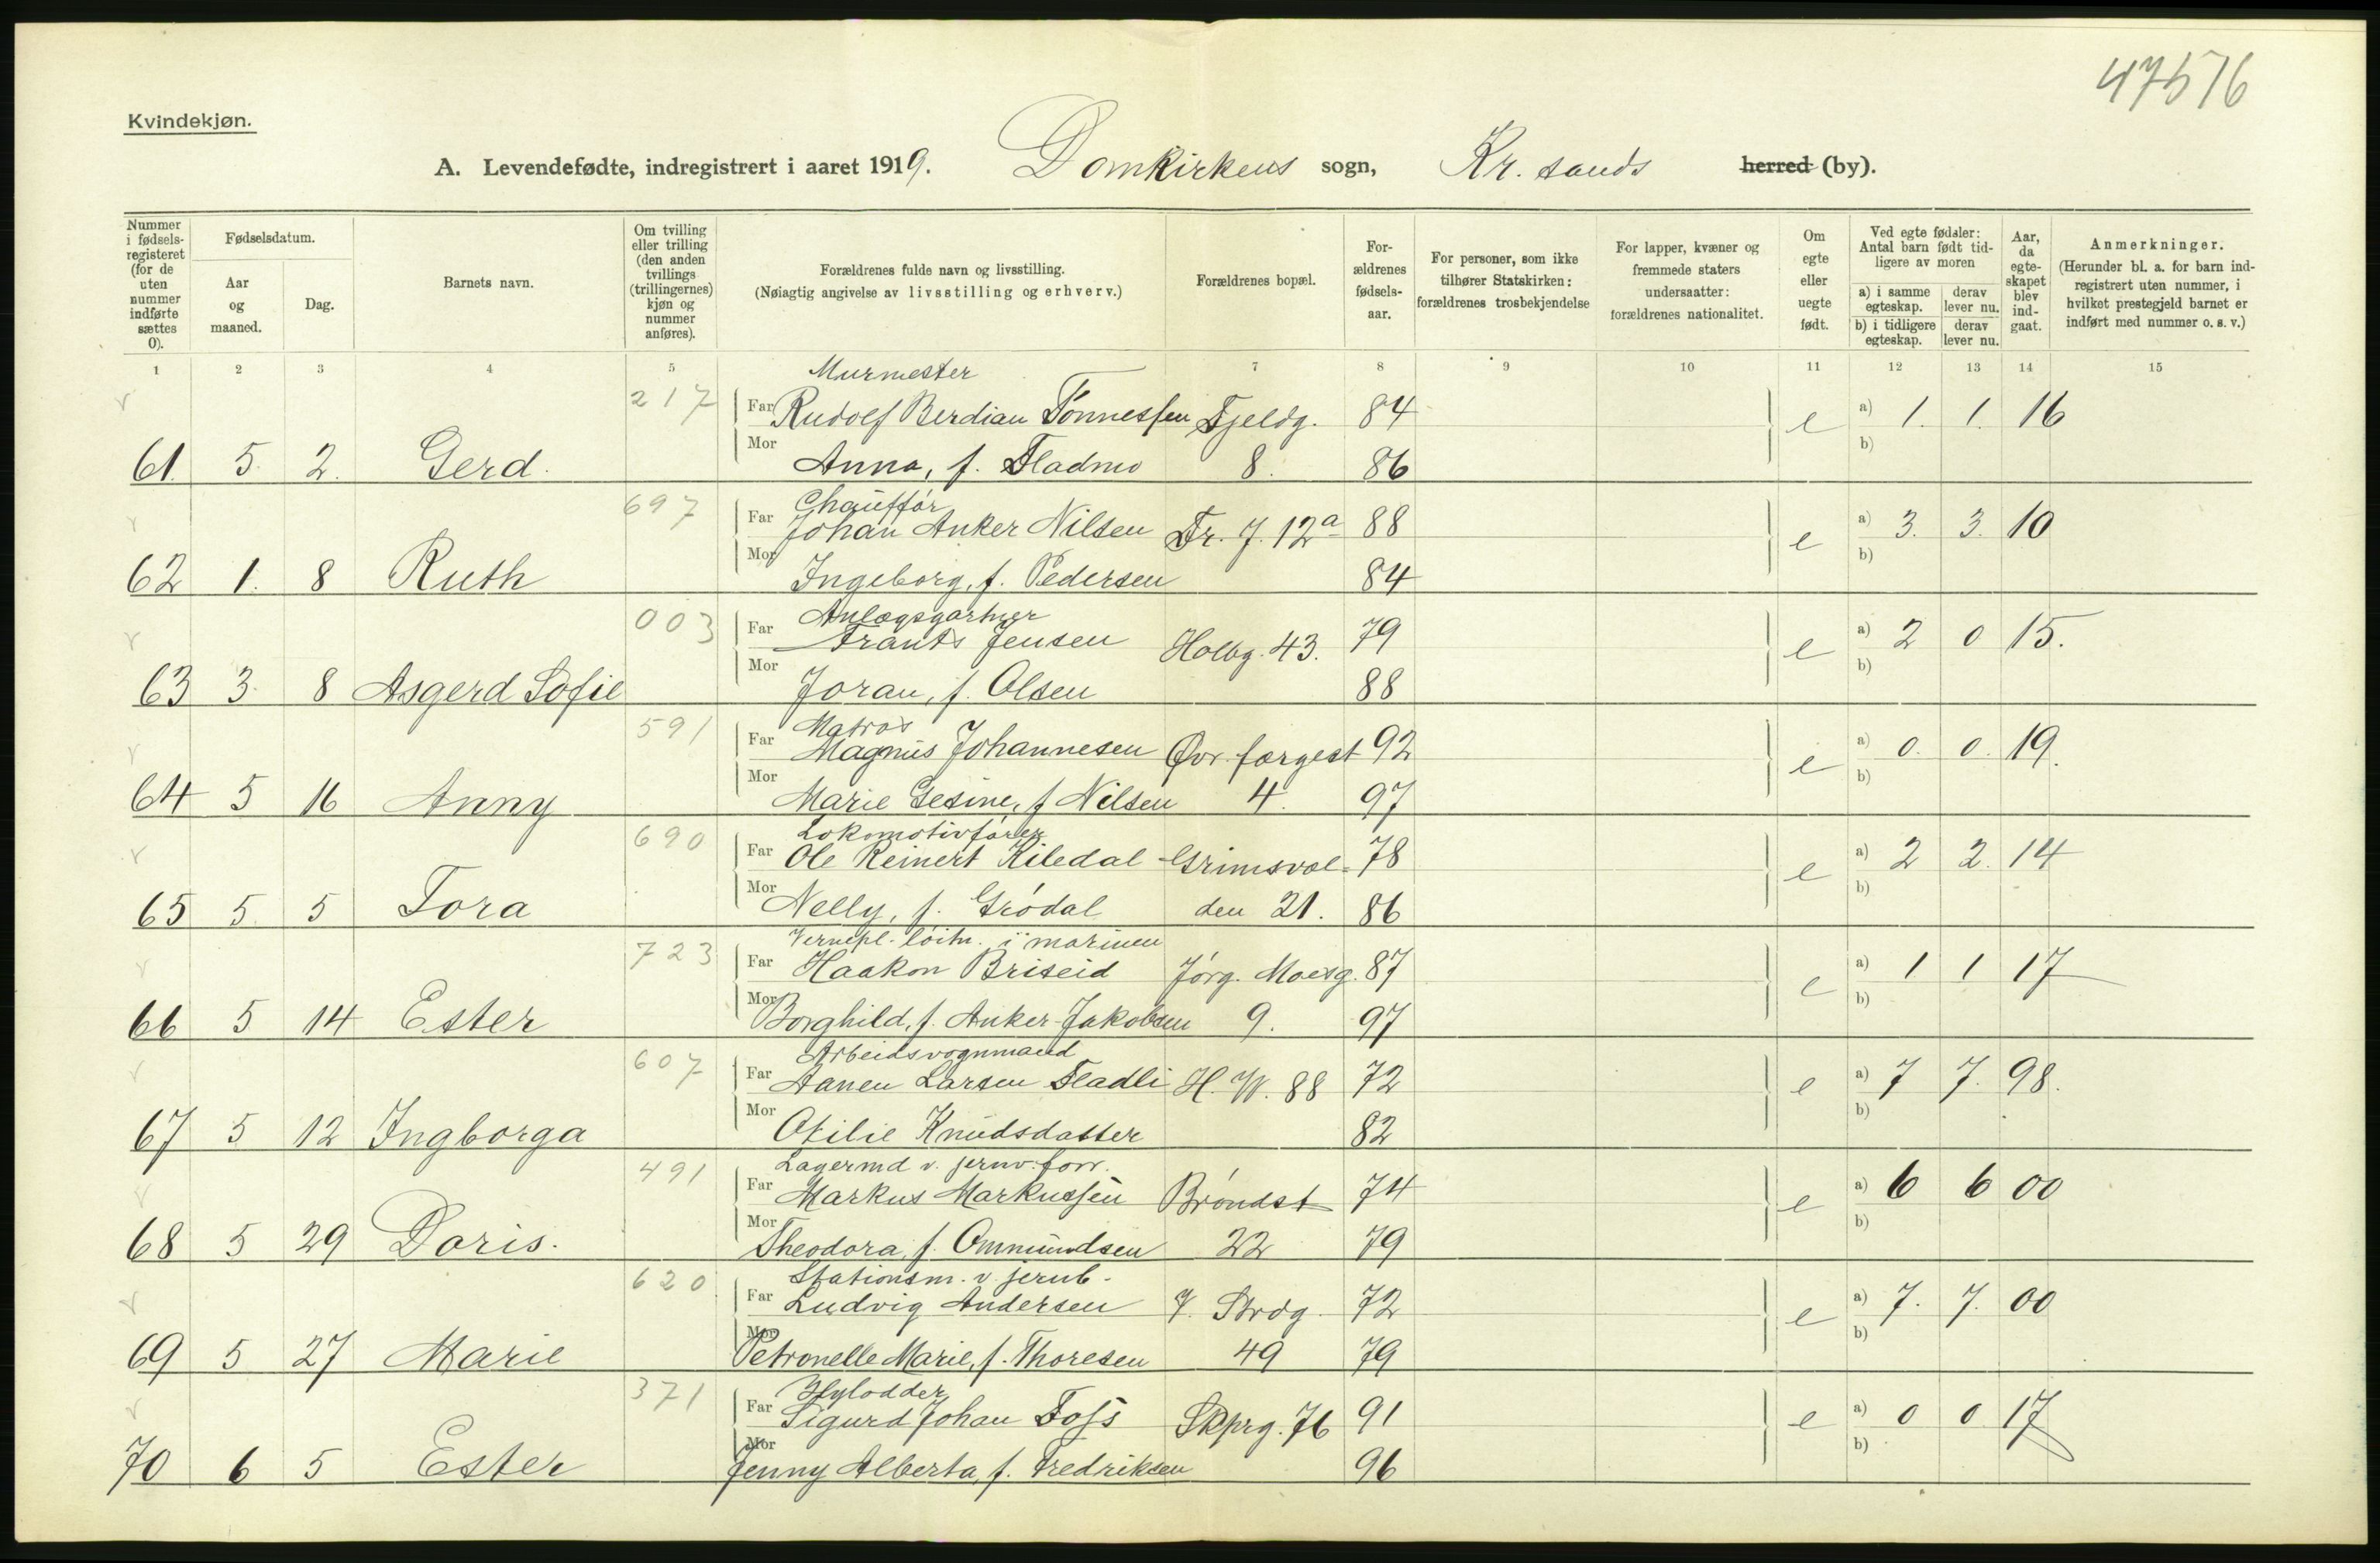 47576
Kvindekjøn.
A. Levendefødte, indregistrert i aaret 1919. Domkirkens sogn, Kr. sands herred (by).
Nummer i fødsels-registeret (for de uten nummer indførte sættes 0).
Fødselsdatum.
Aar og maaned.
Dag.
Barnets navn.
Om tvilling eller trilling (den anden tvillings (trillingernes) kjøn og nummer anføres).
Forældrenes fulde navn og livsstilling.
(Nøiagtig angivelse av livsstilling og erhverv.)
Forældrenes bopæl.
For-ældrenes fødsels-aar.
For personer, som ikke tilhører Statskirken: forældrenes trosbekjendelse
For lapper, kvæner og fremmede staters undersaatter: forældrenes nationalitet.
Om egte eller uegte født.
Ved egte fødsler: Antal barn født tid-ligere av moren
a) i samme egteskap. derav lever nu.
b) i tidligere egteskap. derav lever nu.
Aar, da egte-skapet blev ind-gaat.
Anmerkninger.
(Herunder bl. a. for barn ind-registrert uten nummer, i hvilket prestegjeld barnet er indført med nummer o. s. v.)
1 2 3 4 5 7 8 9 10 11 12 13 14 15
Murmester
217 Far Rudolf Berdian Tønnessen Fjeldg. 84 e a) 1. 1. 16
61. 5. 2. Gerd. Mor Anna, f. Fladmo 8. 86 b)
Chauffør
697 Far Johan Anker Nilsen Tr. 7. 12a 88 e a) 3. 3. 10
62 1. 8 Ruth Mor Ingeborg, f. Pedersen 84 b)
Anlægsgartner
003 Far Frants Jensen Holbg. 43. 79 e a) 2 0 15.
63 3. 8 Asgerd Sofie Mor Joran, f. Olsen 88 b)
Matros
591 Far Magnus Johannesen Øvr. færgest 92 e a) 0. 0. 19.
64 5 16 Anny Mor Marie Gesine, f Nilsen 4. 97 b)
Lokomotivfører
690 Far Ole Reinert Kiledal Grimsvol- 78 e a) 2 2. 14
65 5. 5 Tora Mor Nelly, f. Grødal den 21. 86 b)
Vernepl. løitn. i marinen
723 Far Haakon Briseid Jørg. Moesg. 87 e a) 1 1 17
66 5 14 Ester Mor Borghild, f. Anker-Jakobsen 9. 97 b)
Arbeidsvognmand
607 Far Aanen Larsen Fladli H. W. 88 72 e a) 7 7. 98.
67 5 12 Ingborga Mor Otilie Knudsdatter 82 b)
Lagermd v. jernv. forr.
491 Far Markus Markussen Brøndst 74 e a) 6 6 00
68 5 29 Doris. Mor Theodora, f. Ommundsen 22 79 b)
Stationsm. v. jernb.
620 Far Ludvig Andersen V. Strdg. 72 e a) 7. 7. 00
69 5 27 Marie Mor Petronelle Marie, f. Thoresen 49 79 b)
371 Far Sigurd Johan Foss Skprg. 76 91 e a) 0 0 17
70 6 5 Ester Mor Jenny Alberta, f. Fredriksen 96 b)